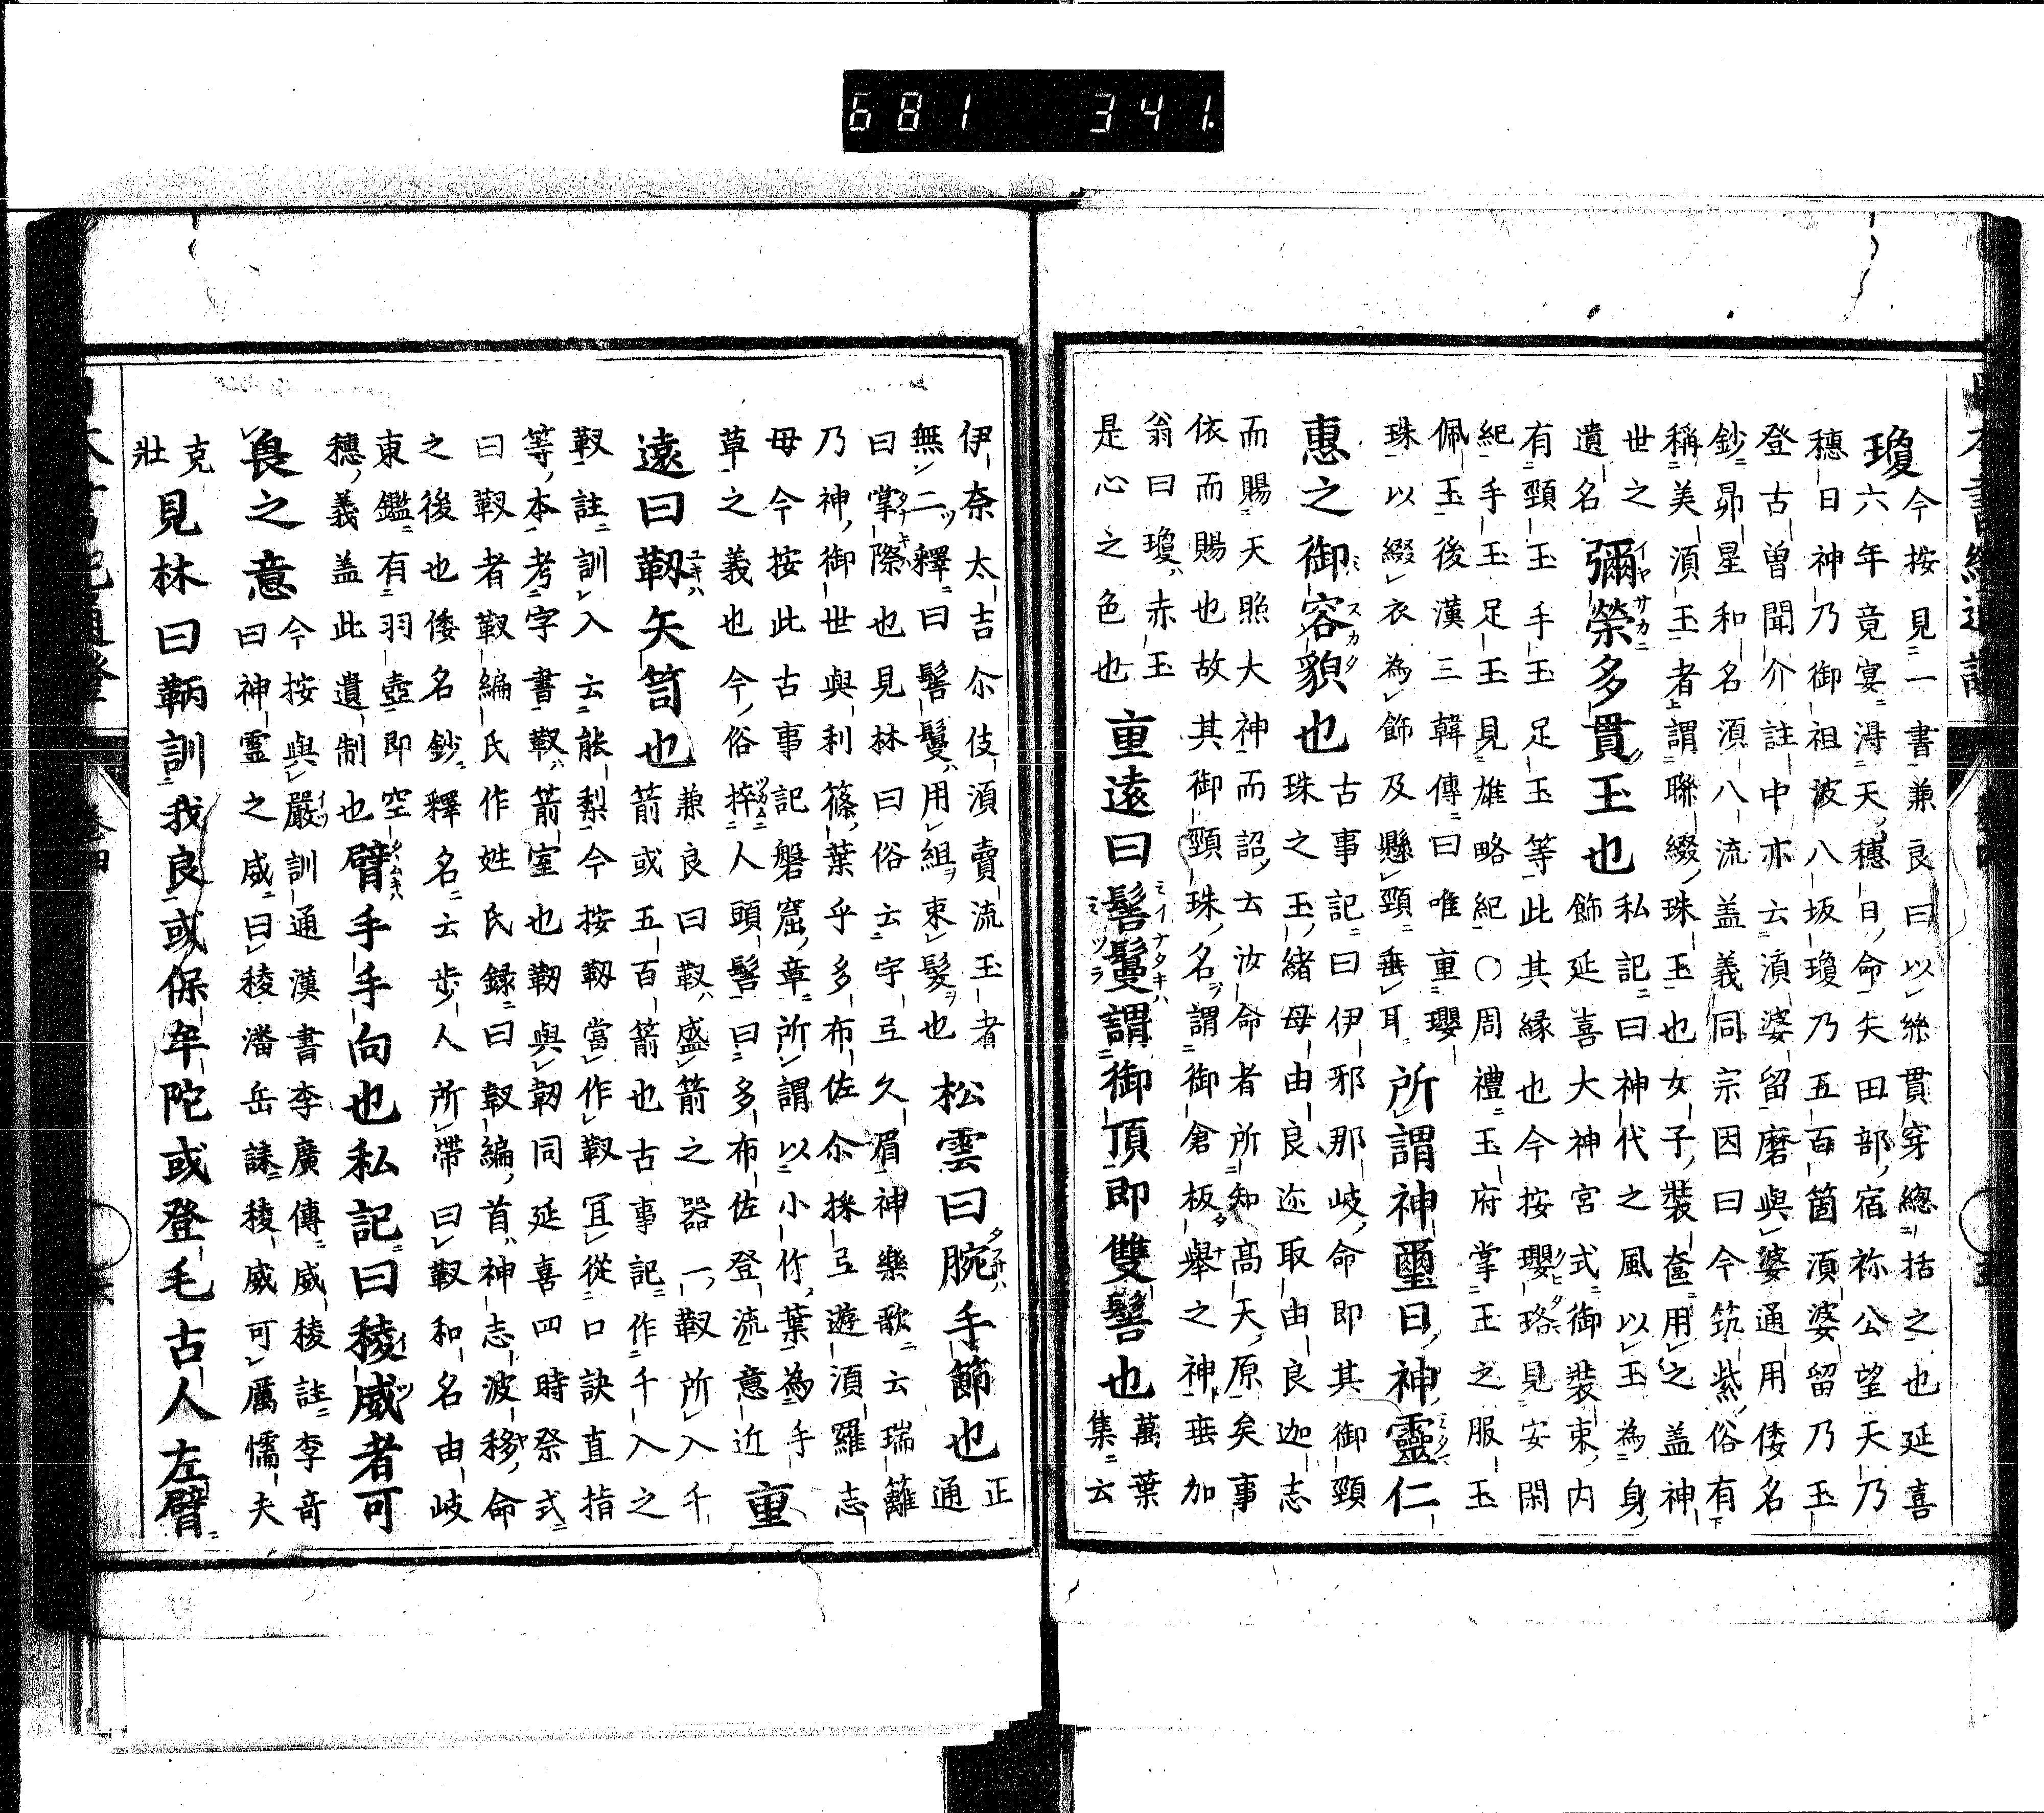 瓊
今按見一書兼良曰以絲貫穿總括之也延喜
六年竟宴淂天穗日命矢田部宿祢公望天乃
穗日神乃御祖波八坂瓊乃五百箇湏婆留乃玉
登古曽聞介註中亦云湏婆留磨與婆通用倭名
鈔昴星和名湏八流盖義同宗因曰今筑紫俗有
稱美湏玉者謂聯綴珠玉也女子裝奩用之盖神
世之
遺名
彌榮多貫玉也
私記曰神代之風以玉為身
飾延喜大神宮式御裝束内
有頸玉手玉足玉等此其縁也今按瓔珞見安閑
紀手玉足玉見雄略紀〇周禮玉府掌王之服玉
佩玉後漢三韓傳曰唯重瓔
珠以綴衣為飾及懸頸垂耳
所謂神璽日神靈仁
惠之御容貌也
古事記曰伊邪那岐命即其御頸
珠之玉緒母由良迩取由良迦志
而賜天照大神而詔云汝命者所知高天原矣事
依而賜也故其御頸珠名謂御倉板舉之神垂加
翁曰瓊赤玉
是心之色也
重遠曰髻鬘謂御頂即雙髻也
萬葉
集云
伊奈太吉尓伎湏賣流玉者
無二釋曰髻鬘用組束髮也
松雲曰腕手節也
正
通
曰掌際也見林曰俗云宇弖久眉神樂歌云瑞籬
乃神御世與利篠葉乎多布佐尓採弖遊湏羅志
母今按此古事記磐窟章所謂以小竹葉為手
草之義也今俗捽人頭髻曰多布佐登流意近
重
遠曰靭矢笥也
兼良曰靫盛箭之器一靫所入千
箭或五百箭也古事記作千入之
靫註訓入云能梨今按靭當作靫冝從口訣直指
等本考字書靫箭室也靭與韌同延喜四時祭式
曰靫者靫編氏作姓氏録曰靫編首神志波移命
之後也倭名鈔釋名云歩人所帶曰靫和名由岐
東鑑有羽壺即空
穗義盖此遺制也
臂手手向也私記曰稜威者可
畏之意
今按與嚴訓通漢書李廣傳威稜註李奇
曰神靈之威曰稜潘岳誄稜威可厲懦夫
克
壯
見林曰鞆訓我良或保牟陀或登毛古人左臂